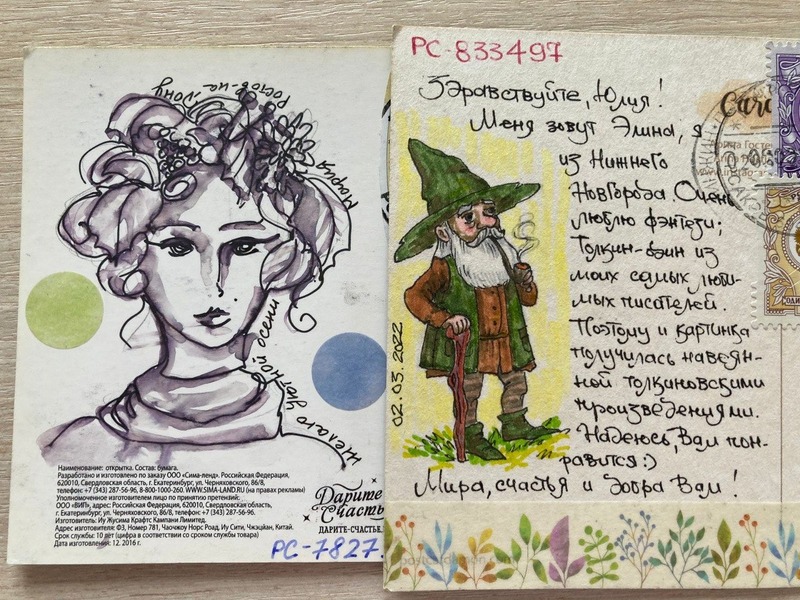 Ростов-на-Дону
Мария
желаю уютной осени
Наименование: открытка. Состав: бумага.
Разработано и изготовлено по заказу ООО «Сима-ленд». Российская Федерация,
620010, Свердловская область, г. Екатеринбург, ул. Черняховского, 86/8,
телефон: +7 (343) 287-56-96, 8-800-1000-260. WWW.SIMA-LAND.RU (на правах рекламы)
Уполномоченное изготовителем лицо по принятию претензий:
ООО «ВИП», адрес: Российская Федерация, 620010, Свердловская область,
г. Екатеринбург, ул. Черняховского, 86/8, телефон: +7 (343) 287-56-96.
Изготовитель: Иу Жусима Крафтс Кампани Лимитед.
Адрес изготовителя: Ф3, Номер 781, Чаочжоу Норс Роад, Иу Сити, Чжэцзян, Китай.
Срок службы: 10 лет (цифра в соответствии со сроком службы товара)
Дата изготовления: 12. 2016 г.
Дарите
Счастье
ДАРИТЕ-СЧАСТЬЕ.
PC-7827
PC-833497
Здравствуйте, Юлия!
Меня зовут Элина, я
из Нижнего
Новгорода. Очень
люблю фэнтези;
Толкин - один из
моих самых люби-
мых писателей.
Поэтому и картинка
получилась навеян-
ной толкиновскими
произведениями.
Надеюсь, Вам пон-
равится:)
Мира, счастья и добра Вам!
02.03.2022